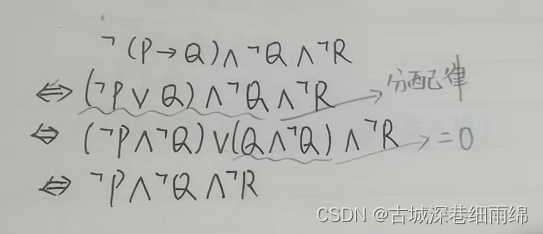 ¬(P→Q)∧¬Q∧¬R
⇔(¬P∨Q)∧¬Q∧¬R → 分配律
⇔(¬P∧¬Q)∨(Q∧¬Q)∧¬R → =0
⇔¬P∧¬Q∧¬R
CSDN @古城深巷细雨绵